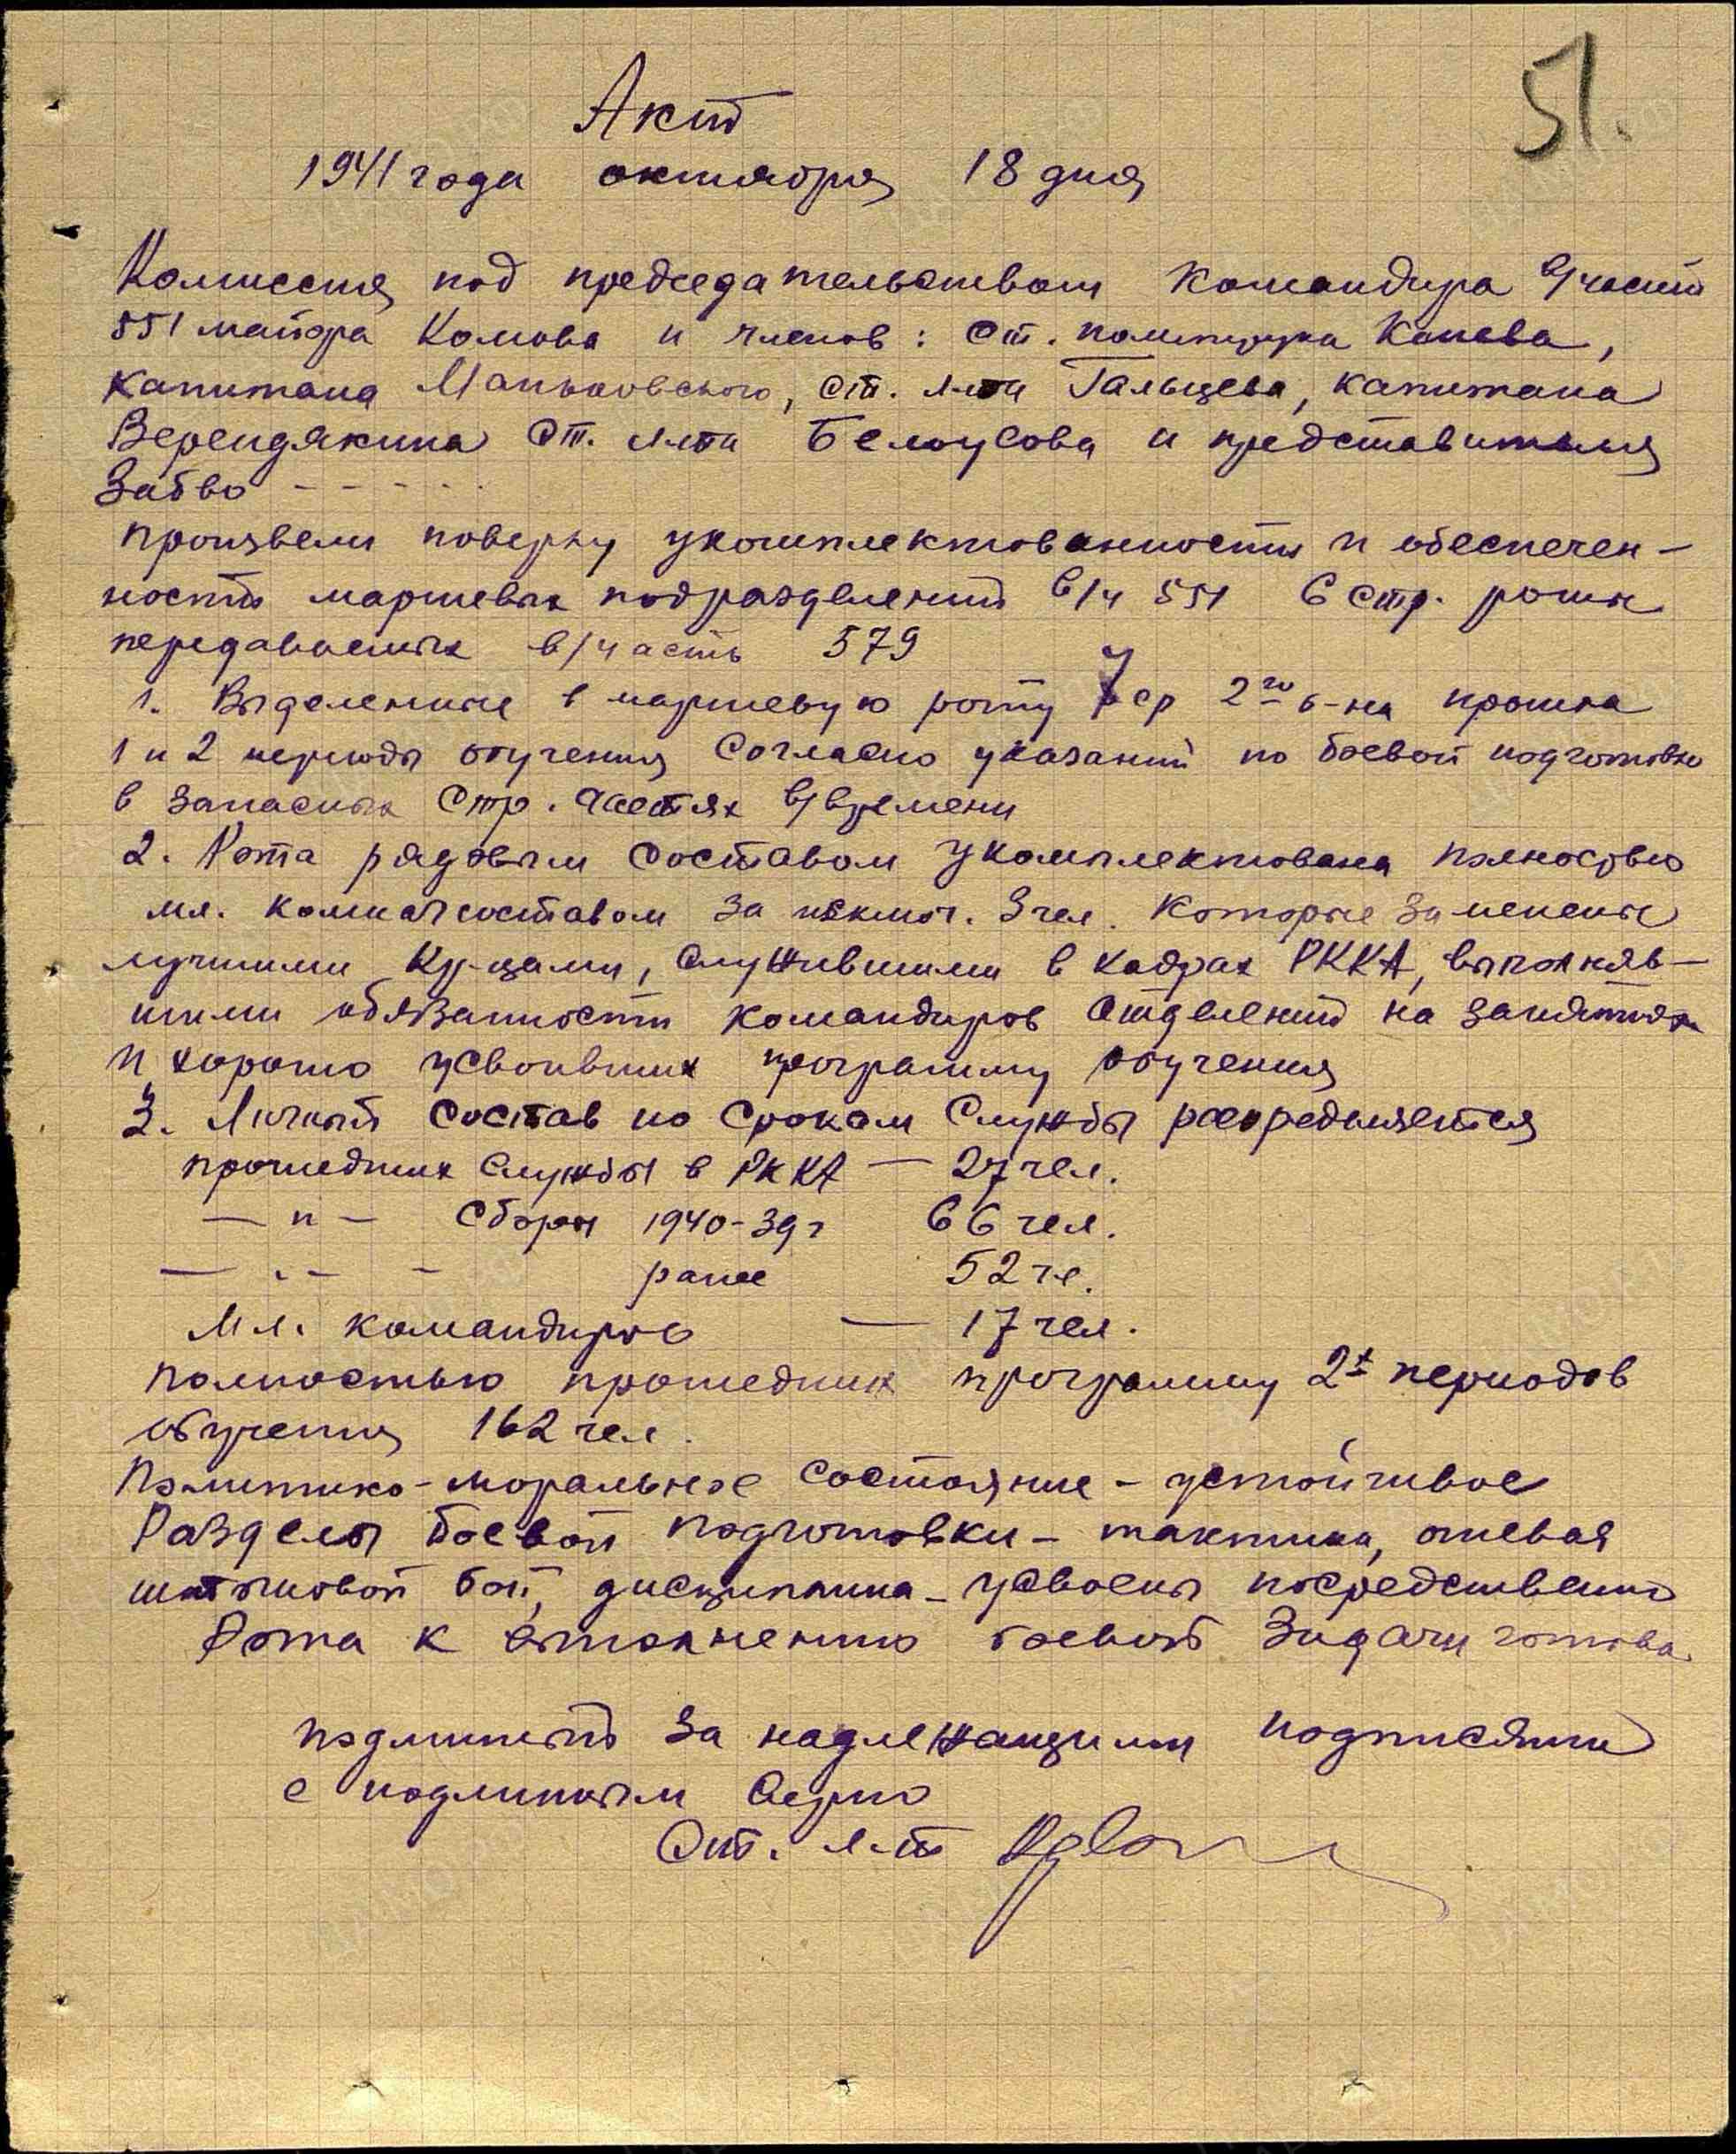 51.
Акт
1941 года октября 18 дня
Комиссия под председательством командира в/части
551 майора Комова и членов: ст. политрука Конева,
капитана Маньковского, ст. л-та Гальцева, капитана
Верендякина ст. л-та Белоусова и представителя
Забво - - - - -
произвели поверку укомплектованности и обеспечен-
ности маршевых подразделений в/ч 551 6 стр. роты
передаваемых в/часть 579
1. Выделенные в маршевую роту 7 ср 2го б-на прошла
1 и 2 периоды обучения согласно указаний по боевой подготовке
в запасных стр. частях в/времени
2. Рота рядовым составом укомплектована полностью
мл. комначсоставом за исключ. 3 чел. которые заменены
лучшими кр-цами, служившими в кадрах РККА, выполняв-
шими обязанности командиров отделений на занятиях
и хорошо усвоивших программу обучения
3. Личный состав по срокам службы распределяется
прошедших службы в РККА — 27 чел.
— " — сборы 1940-39г 66 чел.
— " — ранее 52 че.
Мл. командиров — 17 чел.
полностью прошедших программу 2х периодов
обучения 162 чел.
Политико-моральное состояние - устойчивое
Разделы боевой подготовки - тактика, огневая
штыковой бой, дисциплина - усвоены посредственно
Рота к выполнению боевой задачи готова
подлинный за надлежащими подписями
с подлинным верно
Ст. л-т